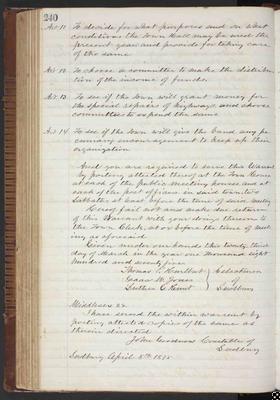 240
Art 11. To decide for what purposes and on what
conditions the Town Hall may be used the
present year and provide for taking care
of the same
Art 12. To choose a committee to make the distribu-
tion of the income of funds.
Art. 13. To see if the town will grant money for
the special repairs of highways and choose
committees to expend the same
Art 14. To see if the town will give the band any pe
cuniary encouragement to keep up their
organization
And you are required to serve this Warrant
by posting attested thereof at the Town House
at each of the public meeting houses and at
each of the post offices in said town two
Sabbaths at least before the time of said meeting
Hereof fail not and make due return
of this Warrant with your doings thereon to
the Town Clerk, at or before the time of meet-
ing as aforesaid
Given under our hands this twenty third
day of March in the year one thousand eight
hundred and seventy five
Thomas P. Hurlbut } Selectmen
Isaac N. Jones } of
Luther E. Hunt } Sudbury
Middlesex ss
I have served the within warrant by
posting attested copies of the same as
therein directed
John Goodnow Constable of
Sudbury
Sudbury April 5th 1875